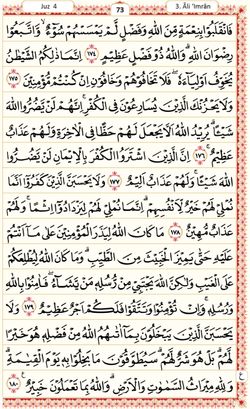 Juz 4 73 3. Āli 'Imrān
فَانْقَلَبُوا بِنِعْمَةٍ مِّنَ اللّٰهِ وَفَضْلٍ لَّمْ يَمْسَسْهُمْ سُوْٓءٌ ۙ وَّاتَّبَعُوْا
رِضْوَانَ اللّٰهِ ۗ وَاللّٰهُ ذُوْ فَضْلٍ عَظِيْمٍ ۝١٧٤ اِنَّمَا ذٰلِكُمُ الشَّيْطٰنُ
يُخَوِّفُ اَوْلِيَآءَهٗ ۖ فَلَا تَخَافُوْهُمْ وَخَافُوْنِ اِنْ كُنْتُمْ مُّؤْمِنِيْنَ ۝١٧٥
وَلَا يَحْزُنْكَ الَّذِيْنَ يُسَارِعُوْنَ فِى الْكُفْرِ ۚ اِنَّهُمْ لَنْ يَّضُرُّوا اللّٰهَ
شَيْـًٔا ۗ يُرِيْدُ اللّٰهُ اَلَّا يَجْعَلَ لَهُمْ حَظًّا فِى الْاٰخِرَةِ ۚ وَلَهُمْ عَذَابٌ
عَظِيْمٌ ۝١٧٦ اِنَّ الَّذِيْنَ اشْتَرَوُا الْكُفْرَ بِالْاِيْمَانِ لَنْ يَّضُرُّوا
اللّٰهَ شَيْـًٔا ۚ وَلَهُمْ عَذَابٌ اَلِيْمٌ ۝١٧٧ وَلَا يَحْسَبَنَّ الَّذِيْنَ كَفَرُوْٓا اَنَّمَا
نُمْلِيْ لَهُمْ خَيْرٌ لِّاَنْفُسِهِمْ ۗ اِنَّمَا نُمْلِيْ لَهُمْ لِيَزْدَادُوْٓا اِثْمًا ۚ وَلَهُمْ
عَذَابٌ مُّهِيْنٌ ۝١٧٨ مَا كَانَ اللّٰهُ لِيَذَرَ الْمُؤْمِنِيْنَ عَلٰى مَآ اَنْتُمْ
عَلَيْهِ حَتّٰى يَمِيْزَ الْخَبِيْثَ مِنَ الطَّيِّبِ ۗ وَمَا كَانَ اللّٰهُ لِيُطْلِعَكُمْ
عَلَى الْغَيْبِ وَلٰكِنَّ اللّٰهَ يَجْتَبِيْ مِنْ رُّسُلِهٖ مَنْ يَّشَآءُ ۖ فَاٰمِنُوْا بِاللّٰهِ
وَرُسُلِهٖ ۚ وَاِنْ تُؤْمِنُوْا وَتَتَّقُوْا فَلَكُمْ اَجْرٌ عَظِيْمٌ ۝١٧٩ وَلَا
يَحْسَبَنَّ الَّذِيْنَ يَبْخَلُوْنَ بِمَآ اٰتٰىهُمُ اللّٰهُ مِنْ فَضْلِهٖ هُوَ خَيْرًا
لَّهُمْ ۗ بَلْ هُوَ شَرٌّ لَّهُمْ ۗ سَيُطَوَّقُوْنَ مَا بَخِلُوْا بِهٖ يَوْمَ الْقِيٰمَةِ ۗ
وَلِلّٰهِ مِيْرَاثُ السَّمٰوٰتِ وَالْاَرْضِ ۗ وَاللّٰهُ بِمَا تَعْمَلُوْنَ خَبِيْرٌ ۝١٨٠